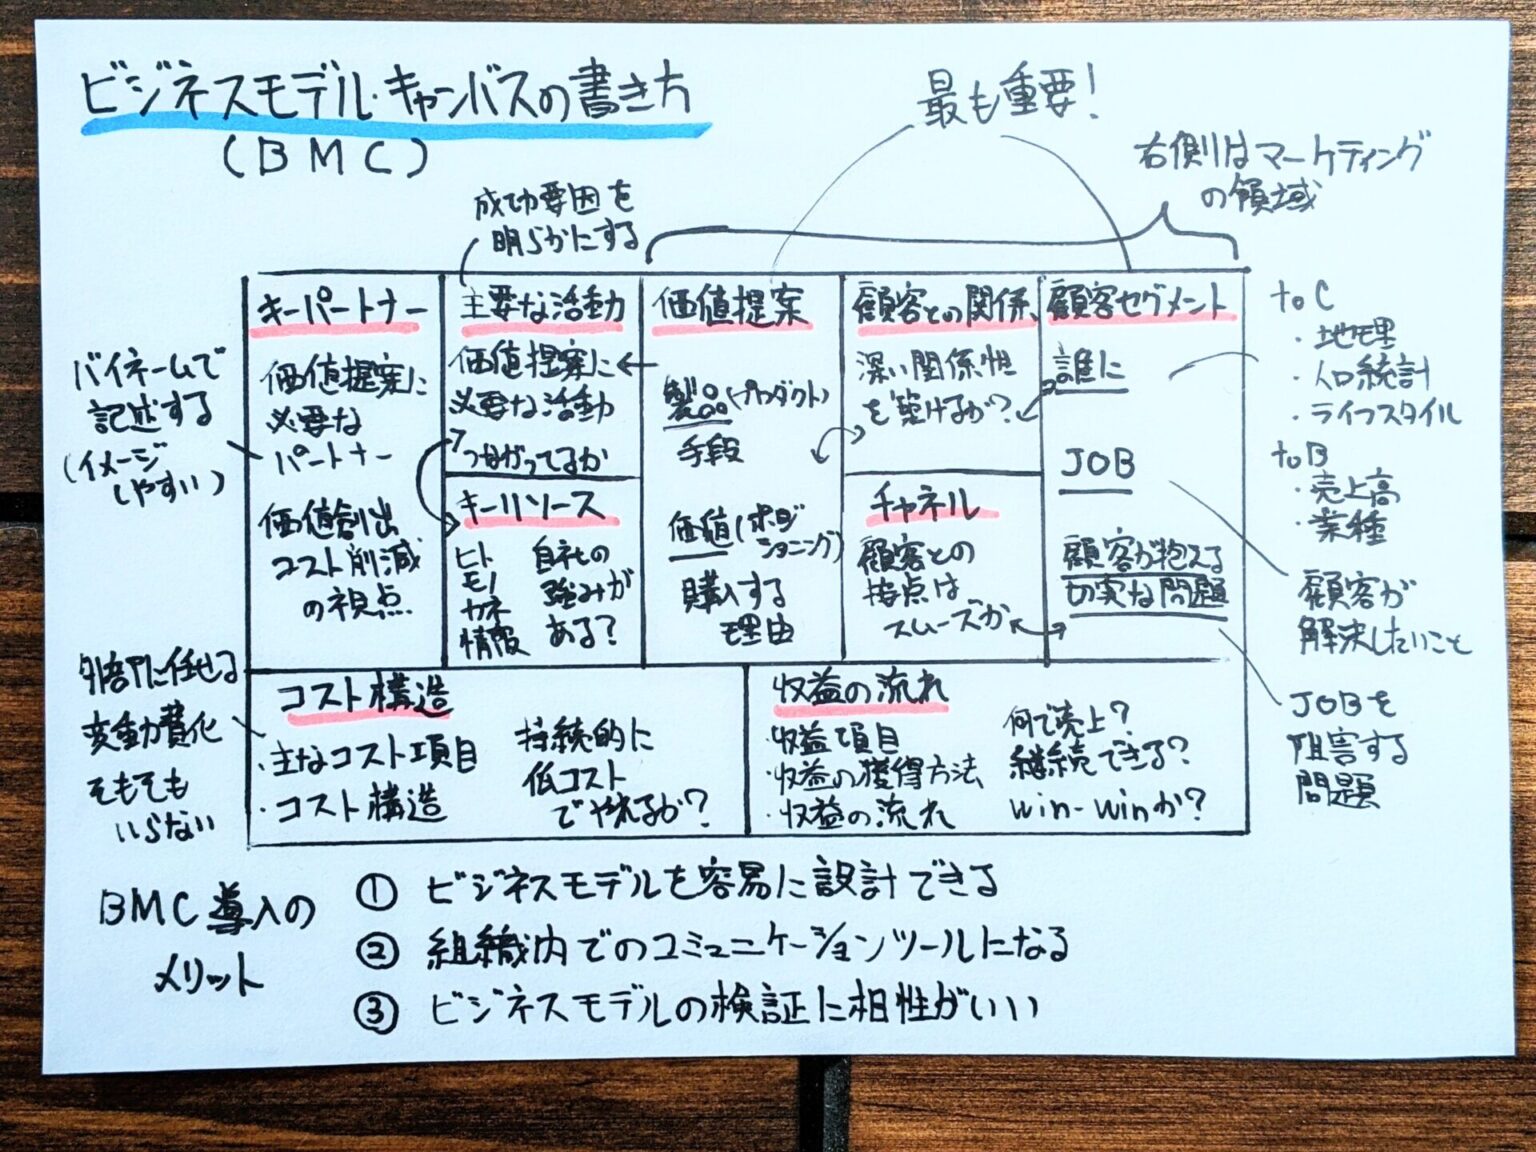 ビジネスモデル・キャンバスの書き方
(BMC)
最も重要！
右側はマーケティング
の領域
成功要因を
明らかにする
キーパートナー
価値提案に
必要な
パートナー
価値創出
コスト削減
の視点
バイネームで
記述する
(イメージ
しやすい)
主要な活動
価値提案に
必要な活動
つながってるか
キーリソース
ヒト
モノ
カネ
情報
自社の
強みが
ある？
価値提案
製品(プロダクト)
手段
価値(ポジ
ショニング)
購入する
理由
顧客との関係
深い関係性
を築けるか？
チャネル
顧客との
接点は
スムーズか
顧客セグメント
誰に
JOB
顧客が抱える
切実な問題
toC
・地理
・人口統計
・ライフスタイル
toB
・売上高
・業種
顧客が
解決したいこと
JOBを
阻害する
問題
外部に任せる
変動費化
そもそも
いらない
コスト構造
・主なコスト項目
・コスト構造
持続的に
低コスト
でやれるか？
収益の流れ
・収益項目
・収益の獲得方法
・収益の流れ
何で売上？
継続できる？
win-winか？
BMC導入の
メリット
① ビジネスモデルを容易に設計できる
② 組織内でのコミュニケーションツールになる
③ ビジネスモデルの検証に相性がいい